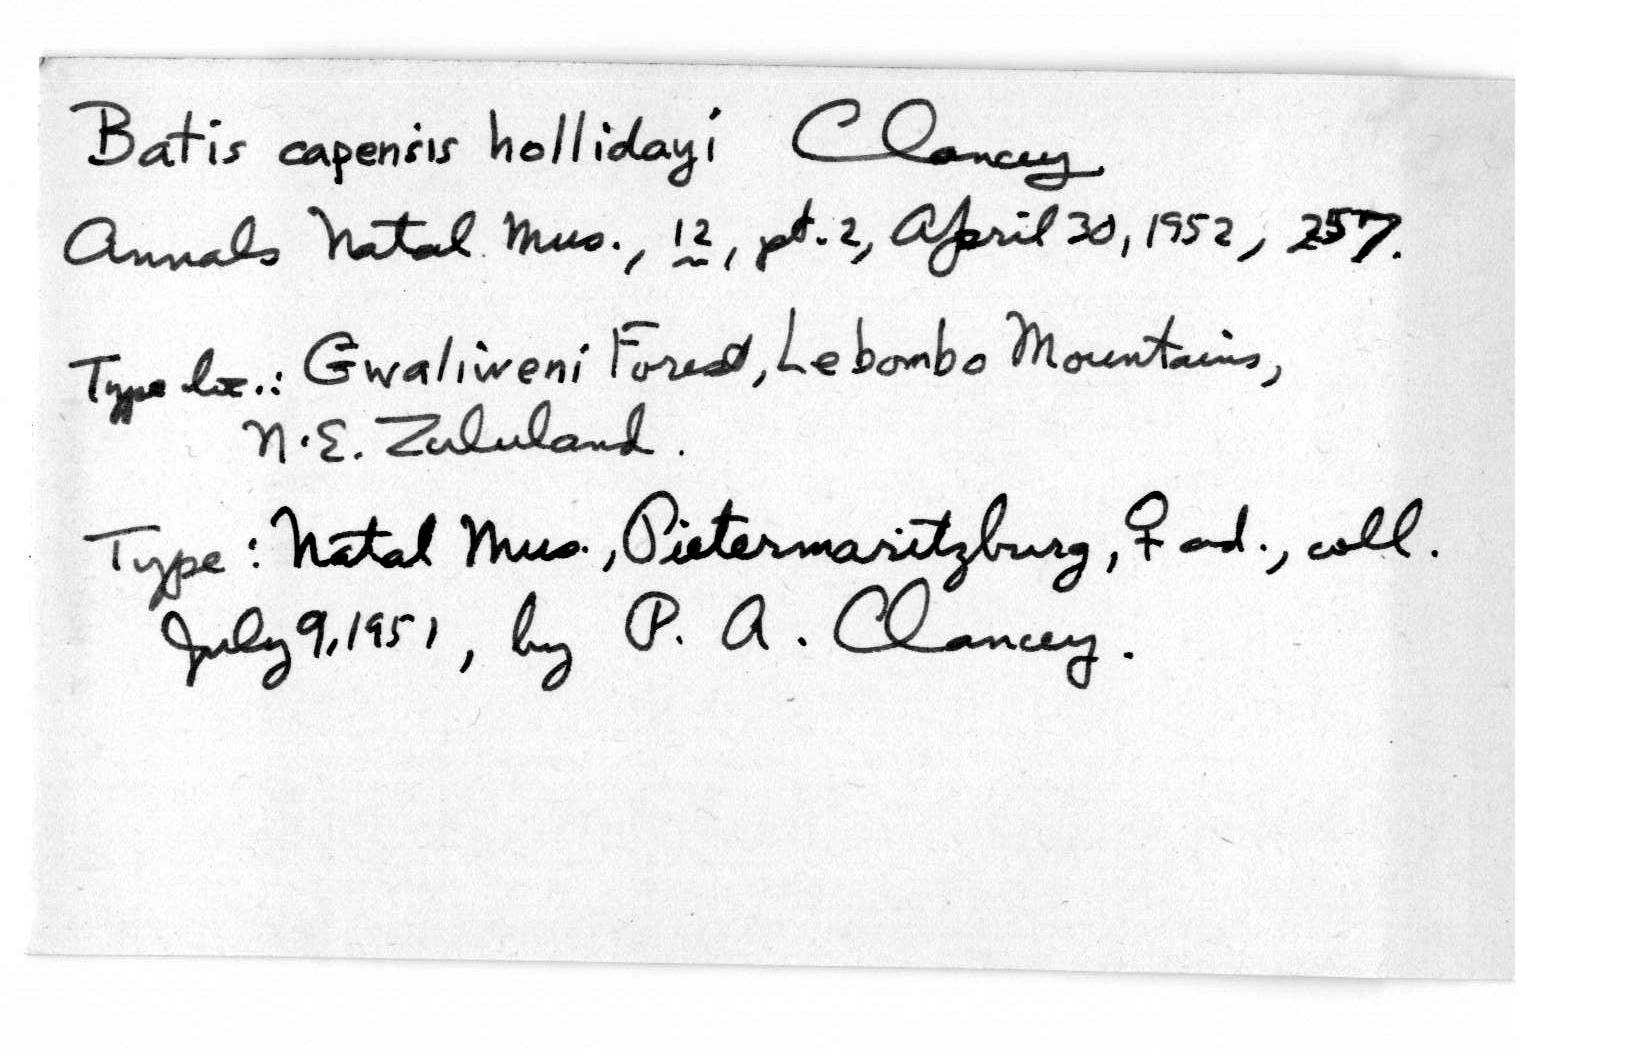 Batis capensis hollidayi Clancey
Annals Natal Mus., 12, pt. 2, April 30, 1952, 257.
Type loc.: Gwaliweni Forest, Lebombo Mountains,
N.E. Zululand.
Type: Natal Mus., Pietermaritzburg, ♀ ad., coll.
July 9, 1951, by P. A. Clancey.